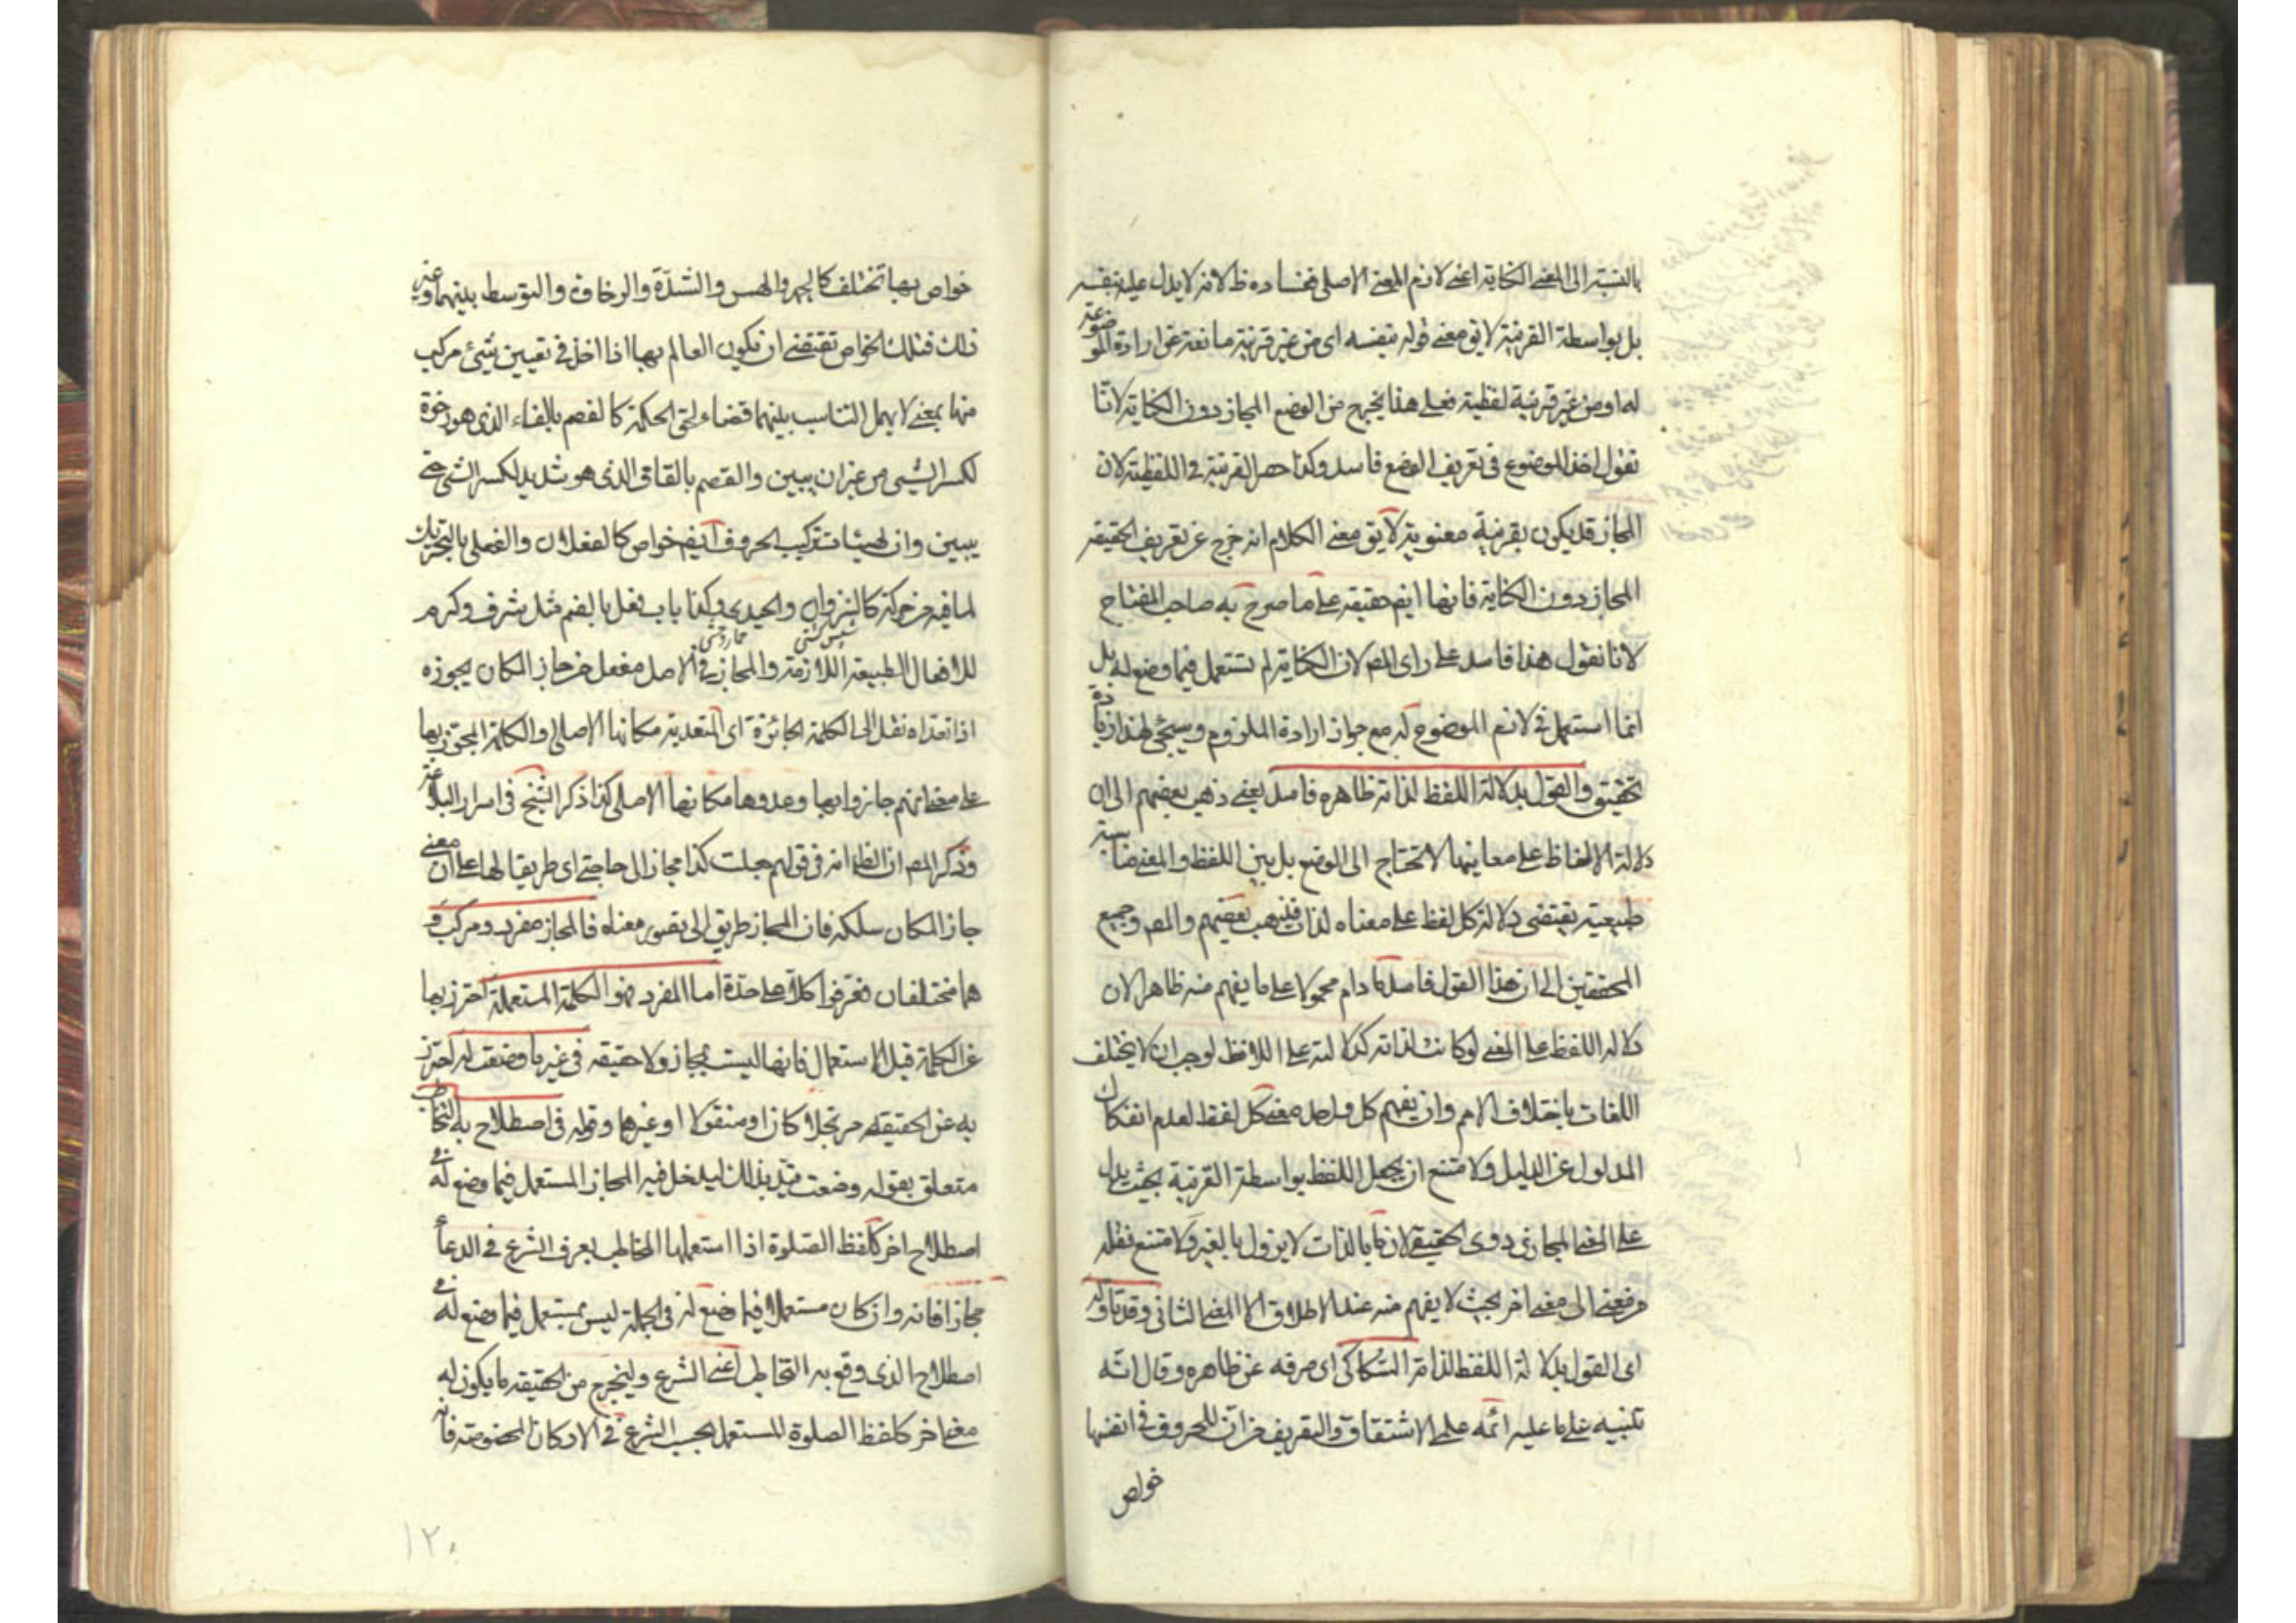 بالنسبة الى المعنى الكناية اعنى لازم المعنى الاصلى ففساده ظ لانه لا يدل عليه بنفسه
بل بواسطة القرينة لا يق معنى قوله بنفسه اى من غير قرينة مانعة عن ارادة الموضوعة
له او من غير قرينة لفظية فعلى هذا يخرج من الوضع المجاز دون الكناية لانا
نقول اخذ الموضوع فى تعريف الوضع فاسد وكذا حصر القرينة فى اللفظية لان
المجاز قد يكون بقرينة معنوية لا يق معنى الكلام انه خرج عن تعريف الحقيقة
المجاز دون الكناية فانها ايض حقيقة على ما صرح به صاحب المفتاح
لانا نقول هذا فاسد على راى المص لان الكناية لم تستعمل فيما وضع له بل
انما استعمل فى لازم الموضوع له مع جواز ارادة الملزوم وسيجئ لهذا زيادة
تحقيق والقول بدلالة اللفظ لذاته ظاهره فاسد يعنى ذهب بعضهم الى ان
دلالة الالفاظ على معانيها لا تحتاج الى الوضع بل بين اللفظ والمعنى مناسبة
طبيعية يقتضى دلالة كل لفظ على معناه لذاته فذهب بعضهم والمص وجميع
المحققين الى ان هذا القول فاسد ما دام محمولا على ما يفهم منه ظاهرا لان
دلالة اللفظ على المعنى لو كانت لذاته كدلالته على اللافظ لوجب ان لا يختلف
اللغات باختلاف الامم وان يفهم كل واحد معنى كل لفظ لعدم انفكاك
المدلول عن الدليل ولامتنع ان يجعل اللفظ بواسطة القرينة بحيث يدل
على المعنى المجازى دون الحقيقى لان ما بالذات لا يزول بالغير ولامتنع نقله
من معنى الى معنى اخر بحيث لا يفهم منه عند الاطلاق الا المعنى الثانى وقد تاوله
اى القول بدلالة اللفظ لذاته السكاكى اى صرفه عن ظاهره وقال انه
تنبيه على ما عليه ائمه علمى الاشتقاق والتصريف من ان للحروف فى انفسها
خواص
خواص بها تختلف كالجهر والهمس والشدّة والرخاوة والتوسط بينهما وغير
ذلك فتلك الخواص تقتضى ان تكون العالم بها اذا اخذ فى تعيين شئ مركب
منها لمعنى لا يهمل التناسب بينهما قضاء لحق الحكمة كالفصم بالفاء الذى هو رخوة
لكسر الشئ من غير ان يبين والقصم بالقاف الذى هو شديد لكسر الشئ حتى
يبين وان لهيئات تركيب الحروف ايض خواص كالفعلان والفعلى بالتحريك
لما فيه من حركة كالنزوان والحيدى وكذا باب فعل بالضم مثل شرف وكرم
للافعال الطبيعية اللازمة والمجاز فى الاصل مفعل من جاز المكان يجوزه
اذا تعداه نقل الى الكلمة الجائزة اى المتعدية مكانها الاصلى والكلمة المجوز بها
على معنى انهم جازوا بها وعدوها مكانها الاصلى كذا ذكر الشيخ فى اسرار البلاغة
وذكر المص ان الظ انه فى قولهم جعلت كذا مجازا الى حاجتى اى طريقا لها على ان معنى
جاز المكان سلكه فان المجاز طريق الى تصور معناه فالمجاز مفرد ومركب و
هما مختلفان فعرفوا كلا على حدة اما المفرد فهو الكلمة المستعملة احترز بها
عن الكلمة قبل الاستعمال فانها ليست بمجاز ولا حقيقة فى غير ما وضعت له احترز
به عن الحقيقة مرتجلا كان او منقولا او غيرها وقوله فى اصطلاح به التخاطب
متعلق بقوله وضعت قيد بذلك ليدخل فيه المجاز المستعمل فيما وضع له فى
اصطلاح اخر كلفظ الصلوة اذا استعملها المخاطب بعرف الشرع فى الدعاء
مجازا فانه وان كان مستعملا فيما وضع له فى الجملة ليس بمستعمل فيما وضع له فى
اصطلاح الذى وقع به التخاطب اعنى الشرع وليخرج من الحقيقة ما يكون له
معنى اخر كلفظ الصلوة المستعمل بحسب الشرع فى الاركان المخصوصة فانه
١٢٠